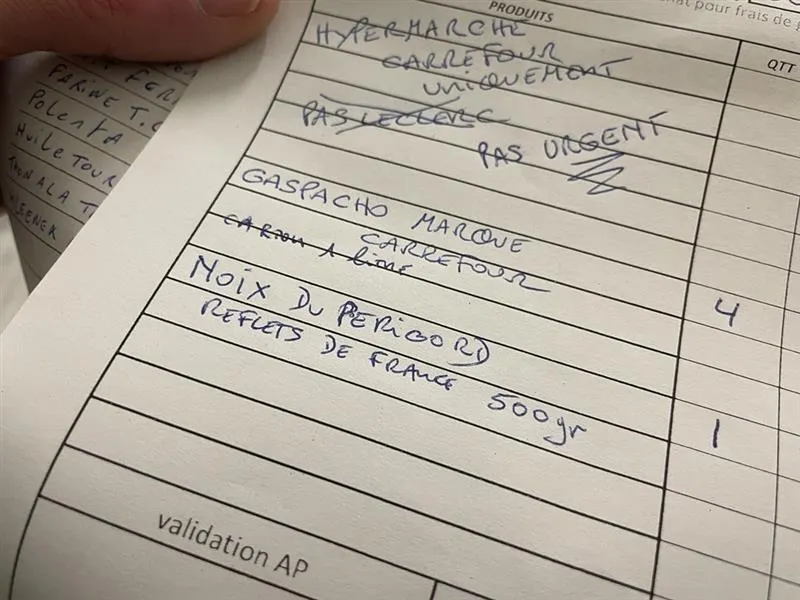 PRODUITS
pour frais de
QTT
HYPERMARCHE
CARREFOUR
UNIQUEMENT
PAS LECLERC
PAS URGENT
GASPACHO MARQUE
CARREFOUR
CARTON 1 litre
4
NOIX DU PERIGORD
REFLETS DE FRANCE 500gr
1
validation AP
FARINE T.
POLENTA
HUILE TOUR
THON A LA T
KLEENEX